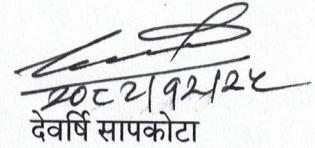 २०८२/१२/२५
देवर्षि सापकोटा